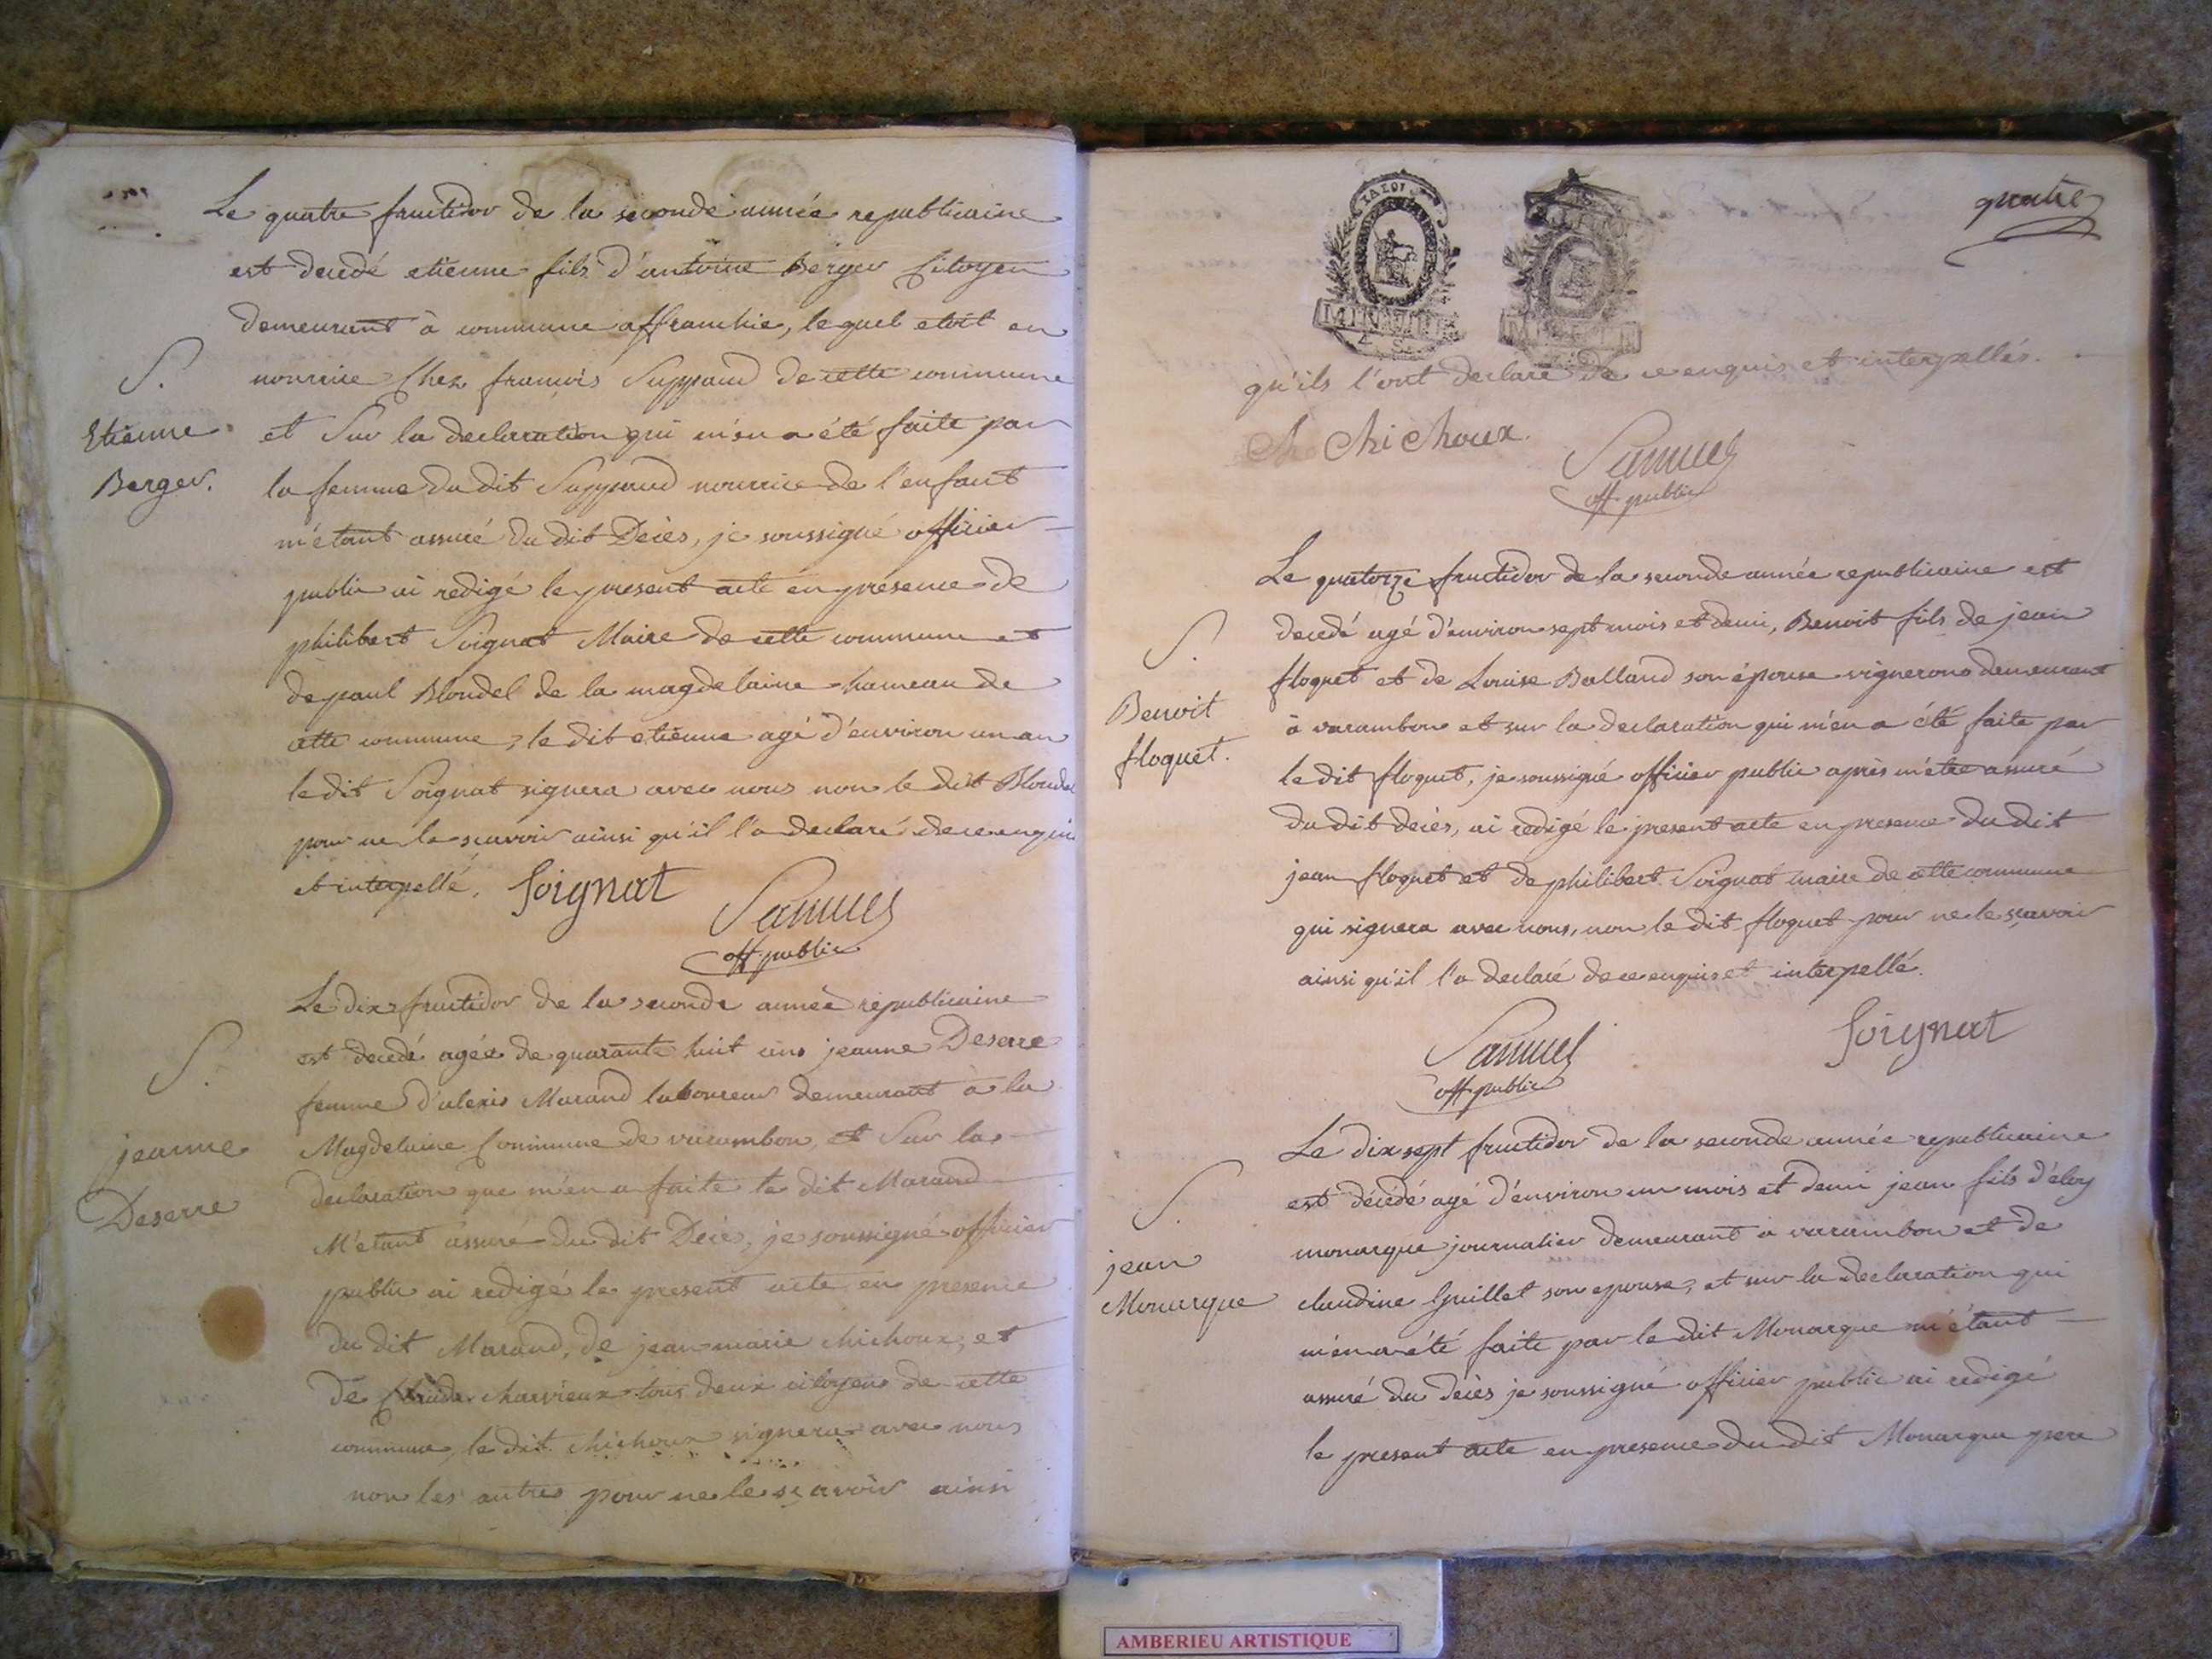 Le quatre fructidor de la seconde année republicaine
est decedé etienne fils d'antoine Berger Citoyen
demeurant à commune affranchie, lequel etoit en
S. nourrice Chez francois Suppaud de cette commune
Etienne et Sur la declaration qui m'en a été faite par
Berger. la femme du dit Suppaud nourrice de l'enfant
m'étant assuré du dit Décès, je soussigné officier
public ai redigé le present acte en presence de
philibert Soignat Maire de cette commune et
de paul Blondel de la magdelaine hameau de
cette commune, le dit etienne agé d'environ un an
le dit Soignat signera avec nous non le dit Blondel
pour ne le scavoir ainsi qu'il l'a declaré de ce enquis
et interpellé. Soignat
Samuel
off public
Le dix fructidor de la seconde année republicaine
S. est decedé agée de quarante huit ans jeanne Deserre
femme d'alexis Marand laboureur demeurant à la
jeanne Magdelaine Commune de varambon, et Sur la
Deserre declaration que m'en a faite le dit Marand
M'etant assuré du dit Décè, je soussigné officier
public ai redigé le present acte en presence
du dit Marand, de jean marie chichoux, et
de Claude charvieux tous deux citoyens de cette
commune, le dit chichoux signera avec nous
non les autres pour ne le sçavoir ainsi
quatre
LA LOI
MINUTE
4. S.
qu'ils l'ont declaré de ce enquis et interpellés.
Chichoux.
Samuel
off public
Le quatorze fructidor de la seconde année republicaine est
S. decedé agé d'environ sept mois et demi, Benoit fils de jean
floquet et de Louise Balland son épouse vignerons demeurant
Benoit à varambon et sur la declaration qui m'en a été faite par
floquet. le dit floquet, je soussigné officier public après m'être assuré
du dit decès, ai redigé le present acte en presence du dit
jean floquet et de philibert Soignat maire de cette commune
qui signera avec nous, non le dit floquet pour ne le sçavoir
ainsi qu'il l'a declaré de ce enquis et interpellé.
Samuel Soignat
off public
Le dix sept fructidor de la seconde année republicaine
S. est décédé agé d'environ un mois et demi jean fils d'eloy
monarque journalier demeurant a varambon et de
jean claudine Guillet son epouse, et sur la declaration qui
Monarque m'en a été faite par le dit Monarque m'étant
assuré du decès je soussigné officier public ai redigé
le present acte en presence du dit Monarque pere
AMBERIEU ARTISTIQUE